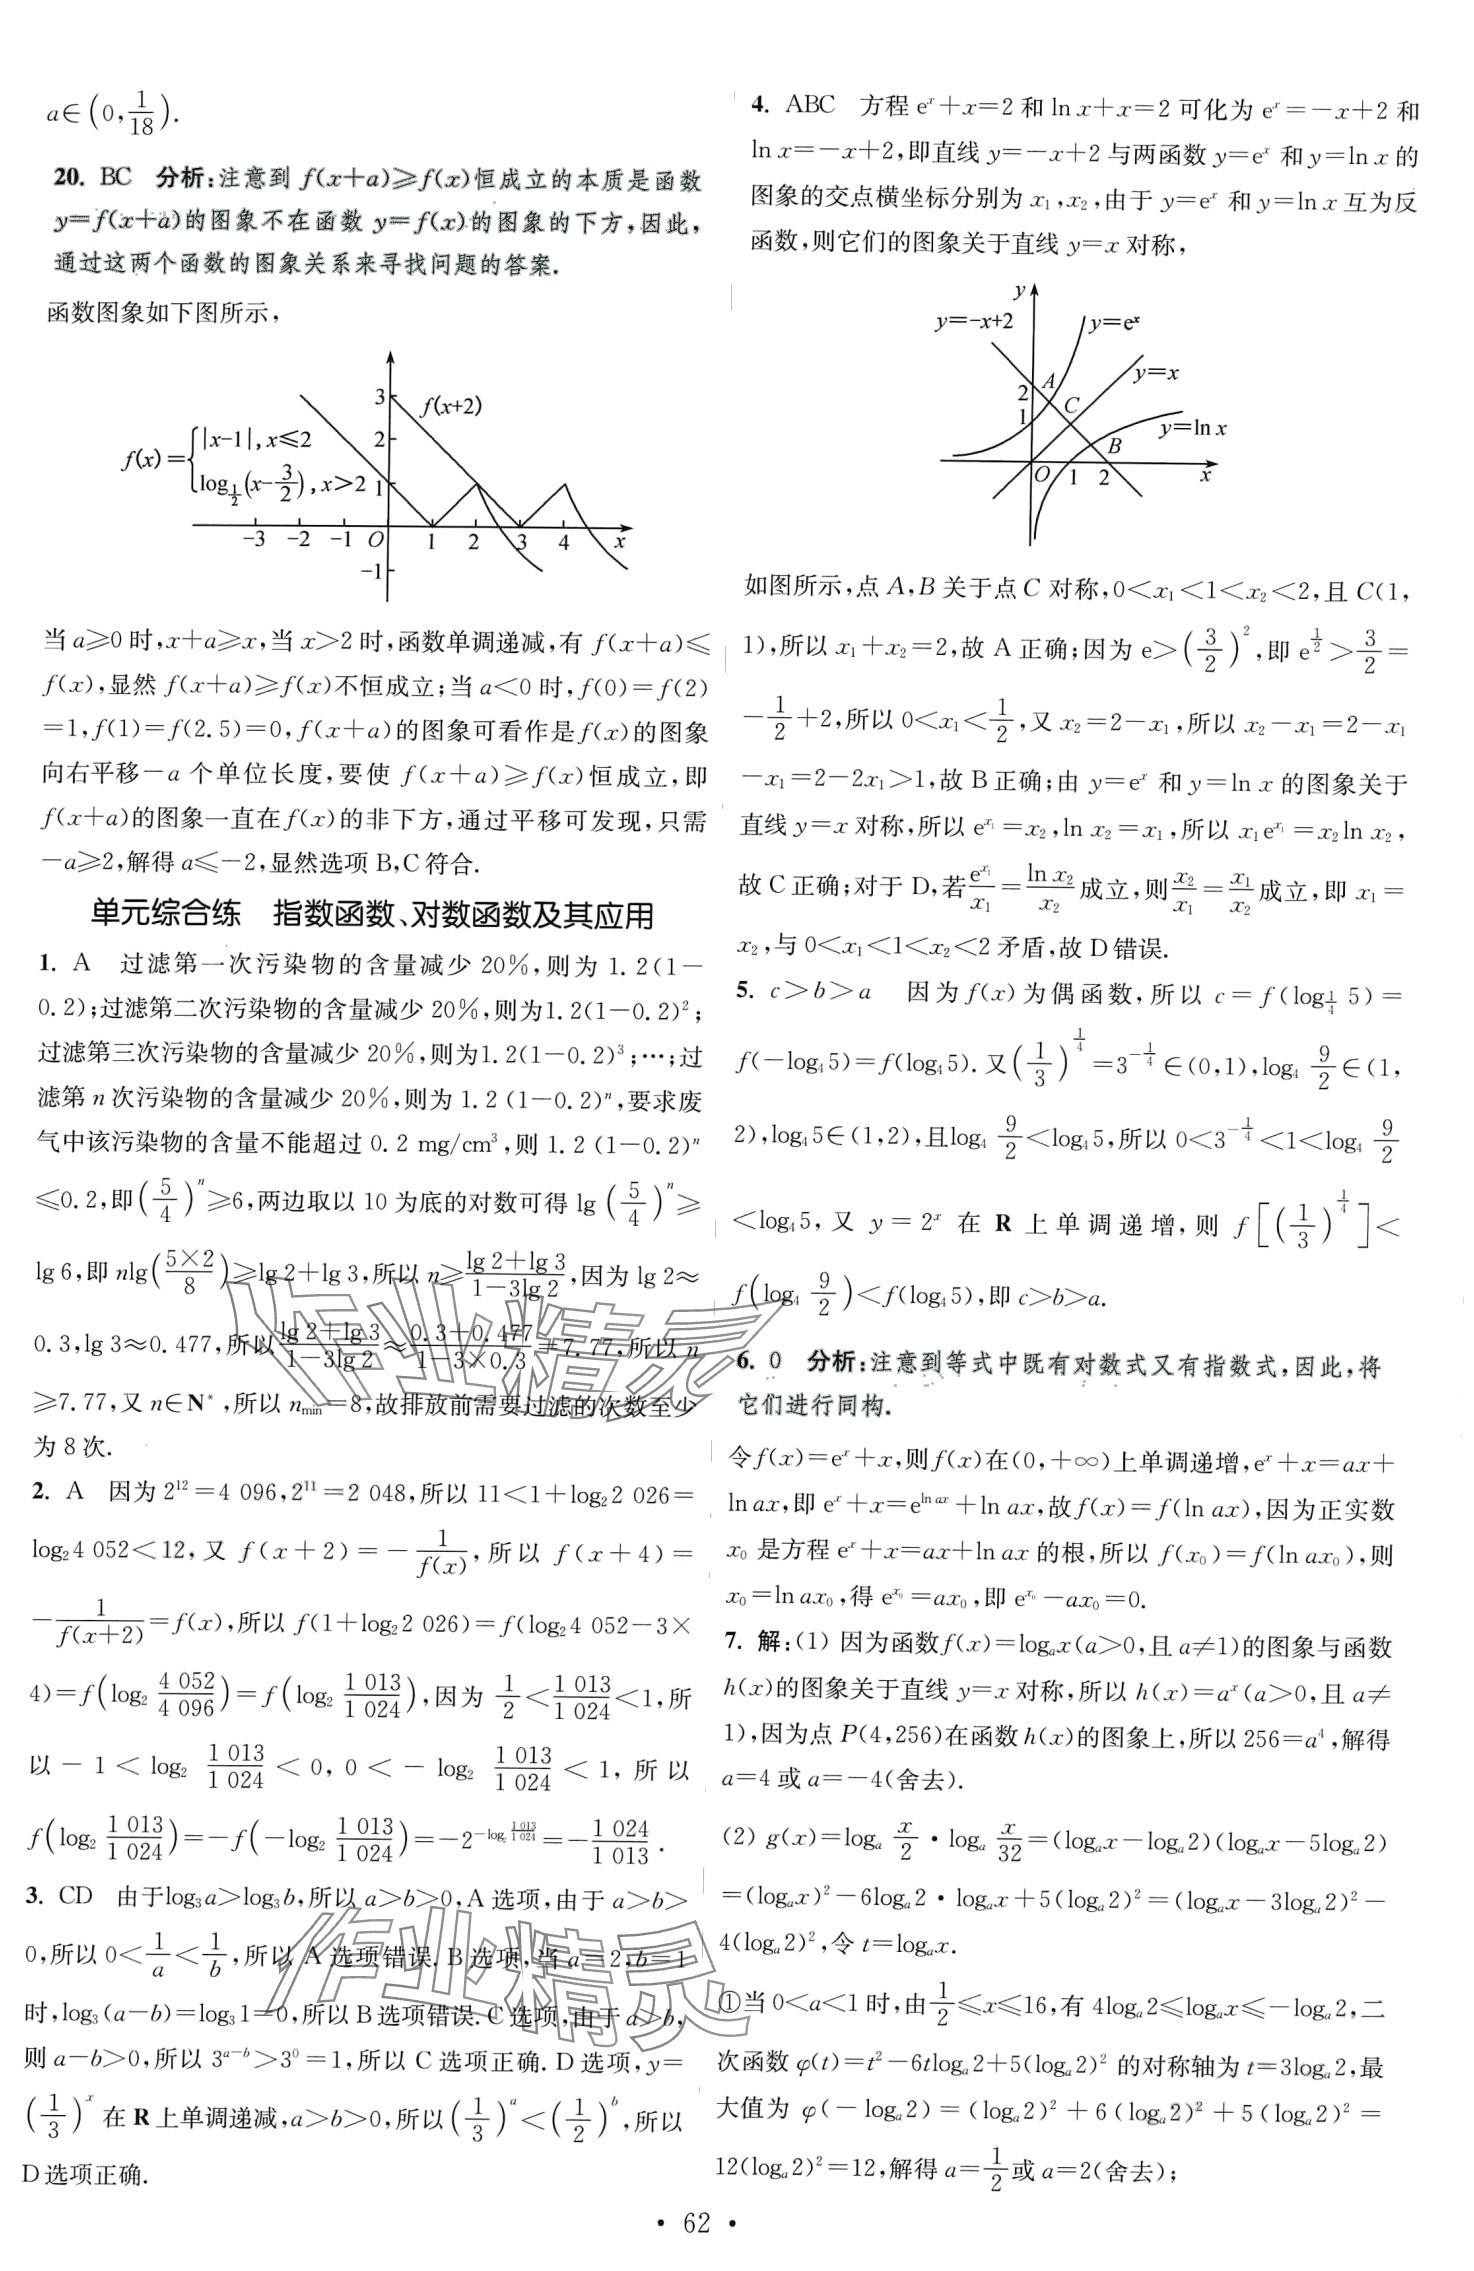 a∈(0,1/18).
20. BC　分析:注意到 f(x+a)⩾f(x)恒成立的本质是函数
y=f(x+a)的图象不在函数 y=f(x)的图象的下方,因此,
通过这两个函数的图象关系来寻找问题的答案.
函数图象如下图所示,
f(x)={|x-1|,x⩽2
log_{1/2}(x-3/2),x>2
f(x+2)
3
2
1
-3 -2 -1 O 1 2 3 4 x
-1
当 a⩾0 时,x+a⩾x,当 x>2 时,函数单调递减,有 f(x+a)⩽
f(x),显然 f(x+a)⩾f(x)不恒成立;当 a<0 时,f(0)=f(2)
=1,f(1)=f(2.5)=0,f(x+a)的图象可看作是f(x)的图象
向右平移-a 个单位长度,要使 f(x+a)⩾f(x)恒成立,即
f(x+a)的图象一直在f(x)的非下方,通过平移可发现,只需
-a⩾2,解得 a⩽-2,显然选项 B,C 符合.
单元综合练　指数函数、对数函数及其应用
1. A　过滤第一次污染物的含量减少 20%,则为 1.2(1-
0.2);过滤第二次污染物的含量减少 20%,则为1.2(1-0.2)²;
过滤第三次污染物的含量减少 20%,则为1.2(1-0.2)³;…;过
滤第 n 次污染物的含量减少 20%,则为 1.2(1-0.2)ⁿ,要求废
气中该污染物的含量不能超过 0.2 mg/cm³,则 1.2(1-0.2)ⁿ
⩽0.2,即(5/4)ⁿ⩾6,两边取以 10 为底的对数可得 lg (5/4)ⁿ⩾
lg 6,即 nlg(5×2/8)⩾lg 2+lg 3,所以 n⩾(lg 2+lg 3)/(1-3lg 2),因为 lg 2≈
0.3,lg 3≈0.477,所以(lg 2+lg 3)/(1-3lg 2)≈(0.3+0.477)/(1-3×0.3)=7.77,所以 n
⩾7.77,又 n∈N*,所以 n_min=8,故排放前需要过滤的次数至少
为 8 次.
2. A　因为 2¹²=4 096,2¹¹=2 048,所以 11<1+log₂2 026=
log₂4 052<12,又 f(x+2)=-1/f(x),所以 f(x+4)=
-1/f(x+2)=f(x),所以 f(1+log₂2 026)=f(log₂4 052-3×
4)=f(log₂ 4 052/4 096)=f(log₂ 1 013/1 024),因为 1/2<1 013/1 024<1,所
以-1<log₂ 1 013/1 024<0,0<-log₂ 1 013/1 024<1,所以
f(log₂ 1 013/1 024)=-f(-log₂ 1 013/1 024)=-2^{-log₂ 1 013/1 024}=-1 024/1 013.
3. CD　由于log₃a>log₃b,所以 a>b>0,A 选项,由于 a>b>
0,所以 0<1/a<1/b,所以 A 选项错误.B 选项,当 a=2,b=1
时,log₃(a-b)=log₃1=0,所以 B 选项错误.C 选项,由于 a>b,
则 a-b>0,所以 3^{a-b}>3⁰=1,所以 C 选项正确.D 选项,y=
(1/3)^x 在 R 上单调递减,a>b>0,所以(1/3)^a<(1/2)^b,所以
D 选项正确.
4. ABC　方程 e^x+x=2 和 ln x+x=2 可化为 e^x=-x+2 和
ln x=-x+2,即直线 y=-x+2 与两函数 y=e^x 和 y=ln x 的
图象的交点横坐标分别为 x₁,x₂,由于 y=e^x 和 y=ln x 互为反
函数,则它们的图象关于直线 y=x 对称,
y
y=-x+2
y=e^x
y=x
2
A
1
C
y=ln x
B
O 1 2 x
如图所示,点 A,B 关于点 C 对称,0<x₁<1<x₂<2,且 C(1,
1),所以 x₁+x₂=2,故 A 正确;因为 e>(3/2)²,即 e^{1/2}>3/2=
-1/2+2,所以 0<x₁<1/2,又 x₂=2-x₁,所以 x₂-x₁=2-x₁
-x₁=2-2x₁>1,故 B 正确;由 y=e^x 和 y=ln x 的图象关于
直线 y=x 对称,所以 e^{x₁}=x₂,ln x₂=x₁,所以 x₁e^{x₁}=x₂ln x₂,
故 C 正确;对于 D,若e^{x₁}/x₁=ln x₂/x₂成立,则x₂/x₁=x₁/x₂成立,即 x₁=
x₂,与 0<x₁<1<x₂<2 矛盾,故 D 错误.
5. c>b>a　因为 f(x)为偶函数,所以 c=f(log_{1/4} 5)=
f(-log₄5)=f(log₄5).又(1/3)^{1/4}=3^{-1/4}∈(0,1),log₄ 9/2∈(1,
2),log₄5∈(1,2),且log₄ 9/2<log₄5,所以 0<3^{-1/4}<1<log₄ 9/2
<log₄5,又 y=2^x 在 R 上单调递增,则 f[(1/3)^{1/4}]<
f(log₄ 9/2)<f(log₄5),即 c>b>a.
6. 0　分析:注意到等式中既有对数式又有指数式,因此,将
它们进行同构.
令 f(x)=e^x+x,则 f(x)在(0,+∞)上单调递增,e^x+x=ax+
ln ax,即 e^x+x=e^{ln ax}+ln ax,故 f(x)=f(ln ax),因为正实数
x₀ 是方程 e^x+x=ax+ln ax 的根,所以 f(x₀)=f(ln ax₀),则
x₀=ln ax₀,得 e^{x₀}=ax₀,即 e^{x₀}-ax₀=0.
7. 解:(1) 因为函数f(x)=log_a x(a>0,且 a≠1)的图象与函数
h(x)的图象关于直线 y=x 对称,所以 h(x)=a^x(a>0,且 a≠
1),因为点 P(4,256)在函数 h(x)的图象上,所以 256=a⁴,解得
a=4 或 a=-4(舍去).
(2) g(x)=log_a x/2·log_a x/32=(log_a x-log_a 2)(log_a x-5log_a 2)
=(log_a x)²-6log_a 2·log_a x+5(log_a 2)²=(log_a x-3log_a 2)²-
4(log_a 2)²,令 t=log_a x.
①当 0<a<1 时,由1/2⩽x⩽16,有 4log_a 2⩽log_a x⩽-log_a 2,二
次函数 φ(t)=t²-6tlog_a 2+5(log_a 2)² 的对称轴为 t=3log_a 2,最
大值为 φ(-log_a 2)=(log_a 2)²+6(log_a 2)²+5(log_a 2)²=
12(log_a 2)²=12,解得 a=1/2或 a=2(舍去);
· 62 ·
作业精灵
作业精灵